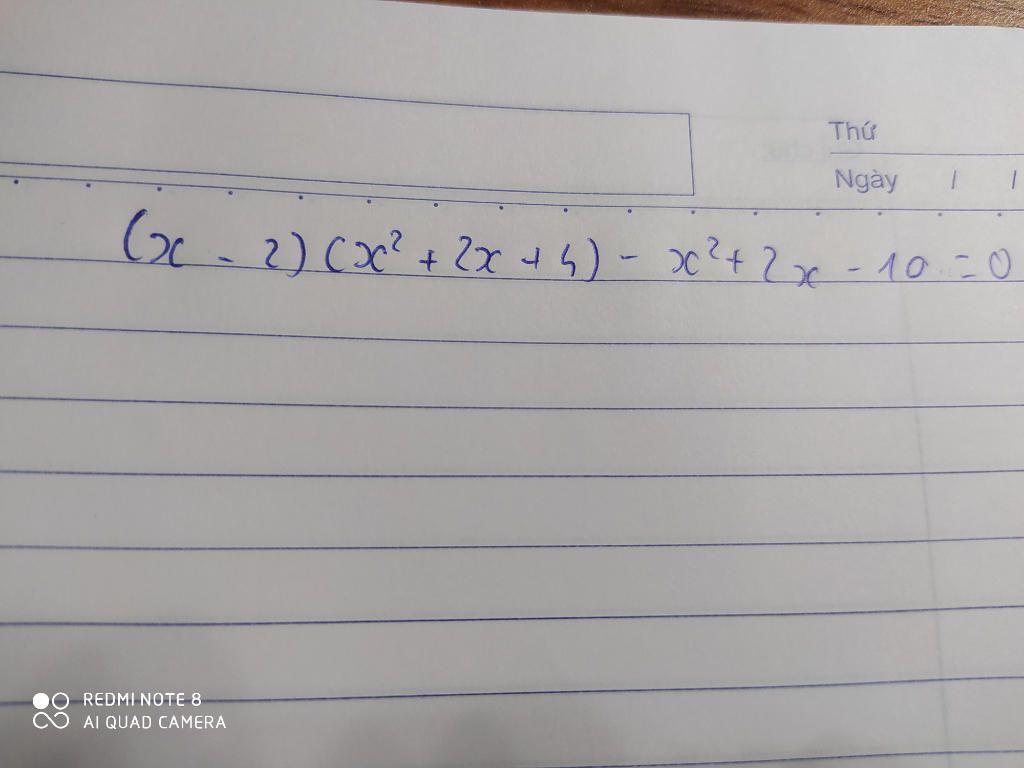 Thứ
Ngày / /
(x - 2)(x² + 2x + 4) - x² + 2x - 10 = 0
REDMI NOTE 8
AI QUAD CAMERA